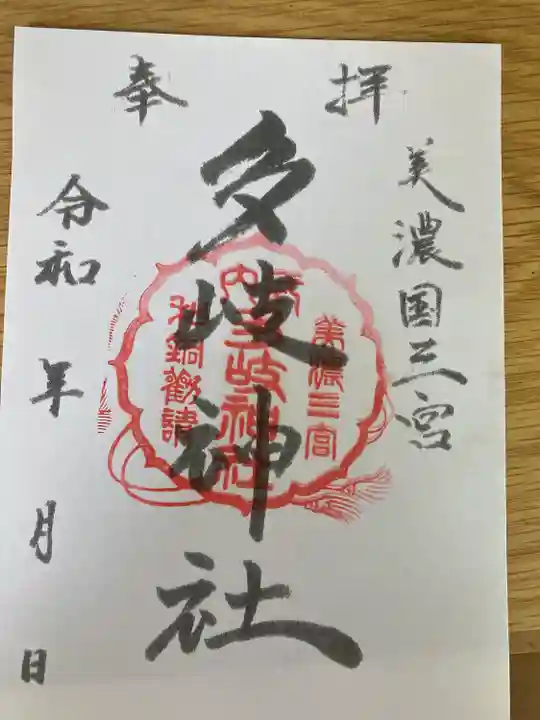 奉拝
美濃国三宮
多岐神社
美濃三宮
多岐神社
和銅勧請
令和 年 月 日